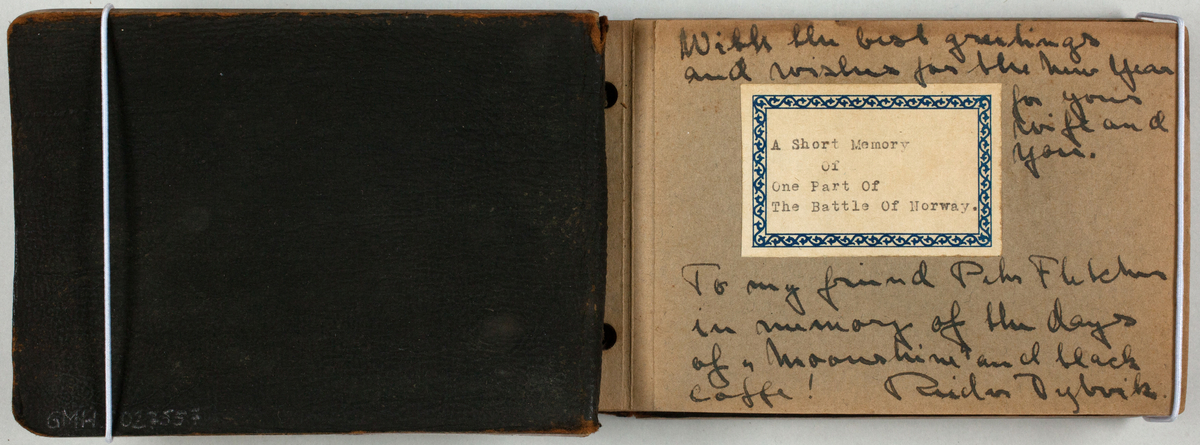 GMH 027557
With the best greetings
and wishes for the New Year
for your
wife and
you.
A Short Memory
Of
One Part Of
The Battle Of Norway.
To my friend Peter Fletcher
in memory of the days
of „Moonshine" and black
caffe! Reidar Dybvik.